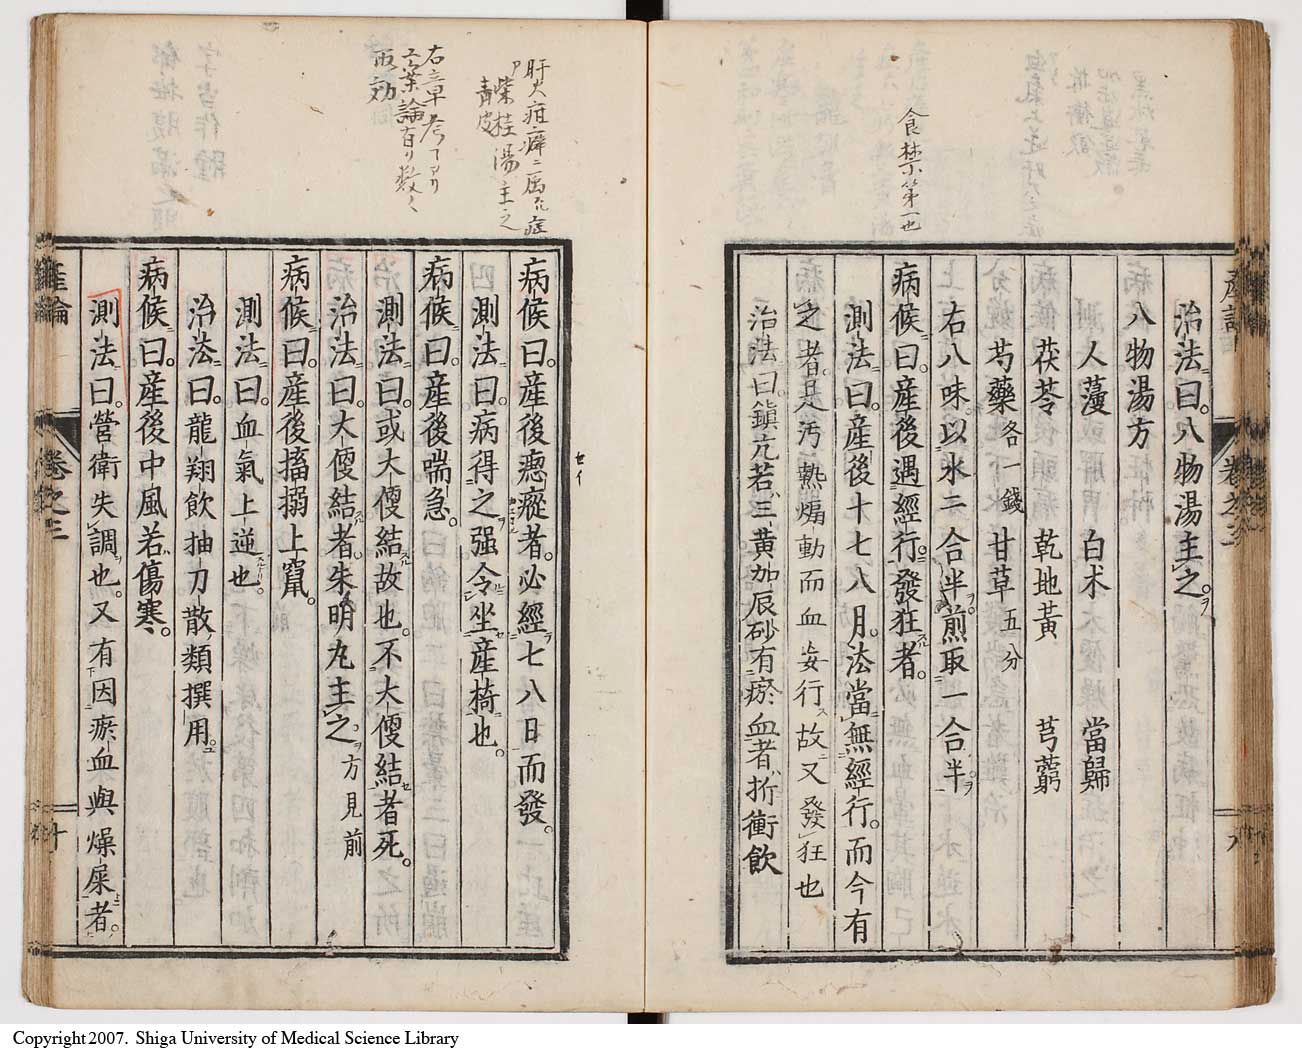 食禁第一也
産論
卷之三
九
治法曰。八物湯主之。
八物湯方
人薓 白朮 當歸
茯苓 乾地黃 芎藭
芍藥各一錢 甘草五分
右八味。以水二合半。煎取一合半。
病候曰。產後遇經行。發狂者。
測法曰。產後十七八月。法當無經行。而今有
之者。是汚熱煽動而血妄行。故又發狂也
治法曰。鎭亢若三黃加辰砂有瘀血者折衝飲
肝火疳癖ニ属スル症
柴桂湯主之
青皮
病候曰。產後瘛瘲者。必經七八日而發。
測法曰。病得之强令坐產椅也。
病候曰。產後喘急。
測法曰。或大便結故也。不大便結者死。
治法曰。大便結者。朱明丸主之方見前
病候曰。產後搐搦上竄。
測法曰。血氣上逆也。
治法曰。龍翔飲抽刀散類撰用。
病候曰。產後中風若傷寒。
測法曰。營衛失調也。又有因瘀血與燥屎者。
産論
卷之三
十
Copyright 2007. Shiga University of Medical Science Library